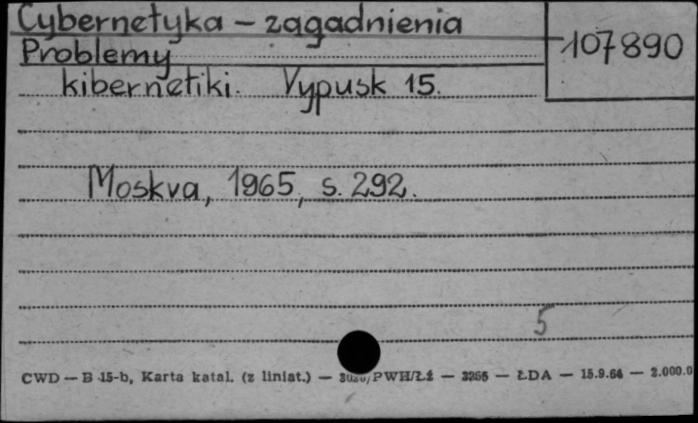 Cybernetyka – zagadnienia
107890
Problemy
kibernetiki. Vypusk 15.
Moskva, 1965, s. 292.
5
CWD — B 15-b, Karta katal. (z liniat.) — /PWH/Łź — 3266 — ŁDA — 15.9.64 — 2.000.0